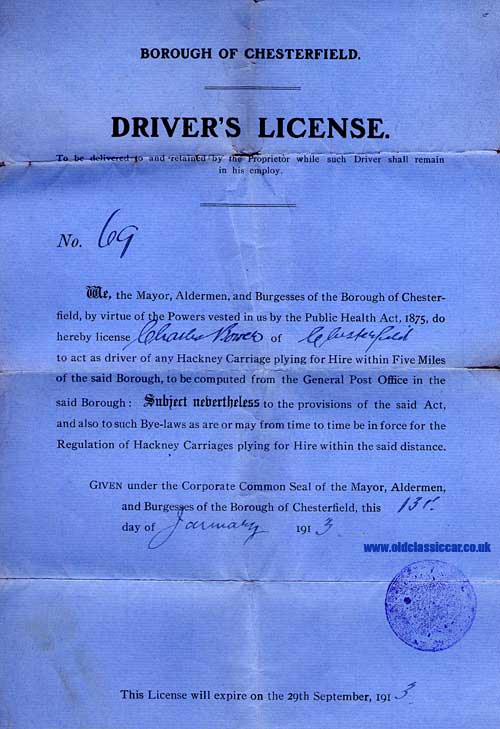 BOROUGH OF CHESTERFIELD.
DRIVER'S LICENSE.
To be delivered to and retained by the Proprietor while such Driver shall remain
in his employ.
No. 69
We, the Mayor, Aldermen, and Burgesses of the Borough of Chester-
field, by virtue of the Powers vested in us by the Public Health Act, 1875, do
hereby license Charles Bower of Chesterfield
to act as driver of any Hackney Carriage plying for Hire within Five Miles
of the said Borough, to be computed from the General Post Office in the
said Borough: Subject nevertheless to the provisions of the said Act,
and also to such Bye-laws as are or may from time to time be in force for the
Regulation of Hackney Carriages plying for Hire within the said distance.
GIVEN under the Corporate Common Seal of the Mayor, Aldermen,
and Burgesses of the Borough of Chesterfield, this 13th
day of January 1913.
www.oldclassiccar.co.uk
This License will expire on the 29th September, 1913